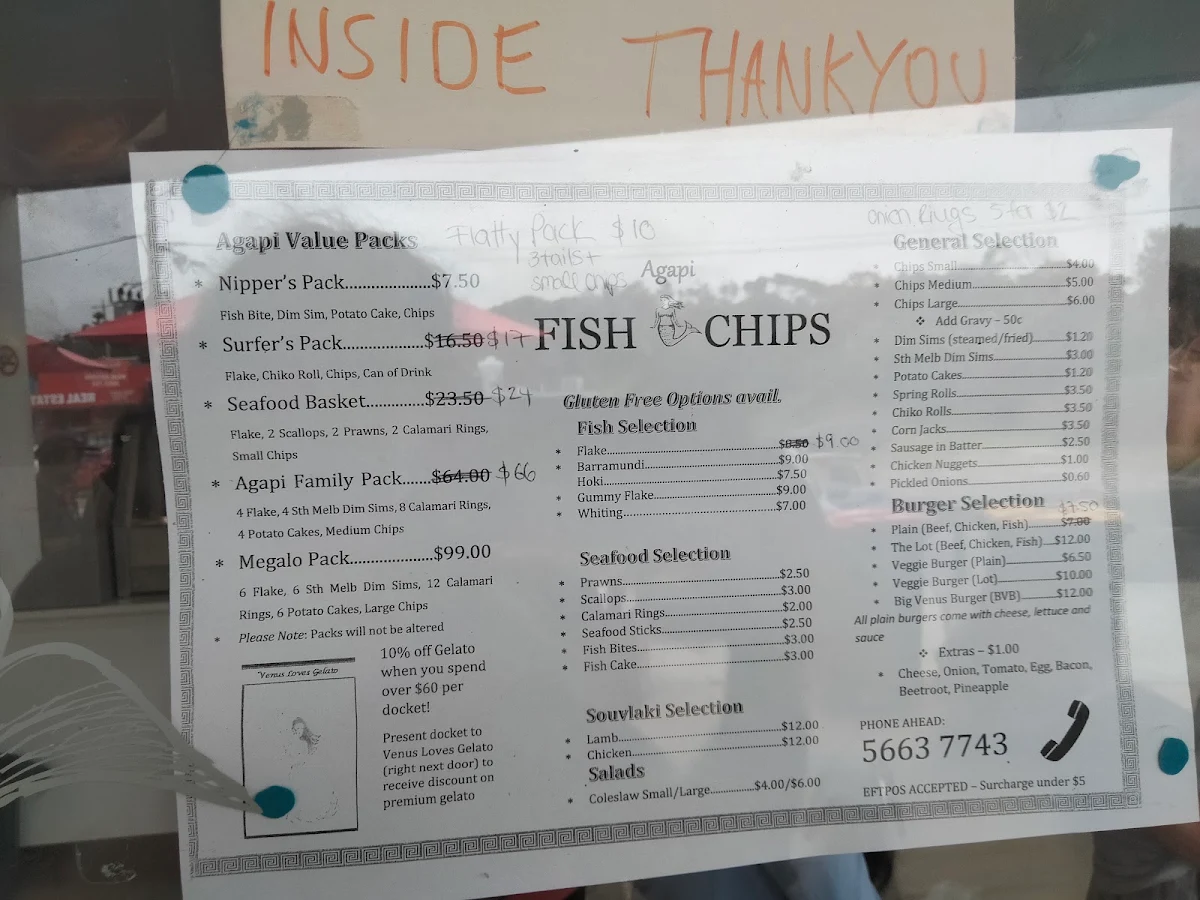 INSIDE THANKYOU
Agapi Value Packs
* Nipper's Pack....................$7.50
Fish Bite, Dim Sim, Potato Cake, Chips
* Surfer's Pack...................$16.50 $17
Flake, Chiko Roll, Chips, Can of Drink
* Seafood Basket.............$23.50 $24
Flake, 2 Scallops, 2 Prawns, 2 Calamari Rings,
Small Chips
* Agapi Family Pack.......$64.00 $66
4 Flake, 4 Sth Melb Dim Sims, 8 Calamari Rings,
4 Potato Cakes, Medium Chips
* Megalo Pack..................$99.00
6 Flake, 6 Sth Melb Dim Sims, 12 Calamari
Rings, 6 Potato Cakes, Large Chips
* Please Note: Packs will not be altered
Venus Loves Gelato
10% off Gelato
when you spend
over $60 per
docket!
Present docket to
Venus Loves Gelato
(right next door) to
receive discount on
premium gelato
Flatty Pack $10
3 tails +
small chips
Agapi
FISH CHIPS
Gluten Free Options avail.
Fish Selection
* Flake....................$8.50 $9.00
* Barramundi....................$9.00
* Hoki....................$7.50
* Gummy Flake....................$9.00
* Whiting....................$7.00
Seafood Selection
* Prawns....................$2.50
* Scallops....................$3.00
* Calamari Rings....................$2.00
* Seafood Sticks....................$2.50
* Fish Bites....................$3.00
* Fish Cake....................$3.00
Souvlaki Selection
* Lamb....................$12.00
* Chicken....................$12.00
Salads
* Coleslaw Small/Large.............$4.00/$6.00
onion Rings 5 for $2
General Selection
* Chips Small....................$4.00
* Chips Medium....................$5.00
* Chips Large....................$6.00
❖ Add Gravy – 50c
* Dim Sims (steamed/fried)........$1.20
* Sth Melb Dim Sims....................$3.00
* Potato Cakes....................$1.20
* Spring Rolls....................$3.50
* Chiko Rolls....................$3.50
* Corn Jacks....................$3.50
* Sausage in Batter....................$2.50
* Chicken Nuggets....................$1.00
* Pickled Onions....................$0.60
Burger Selection
* Plain (Beef, Chicken, Fish)........$7.00 $7.50
* The Lot (Beef, Chicken, Fish)....$12.00
* Veggie Burger (Plain)....................$6.50
* Veggie Burger (Lot)....................$10.00
* Big Venus Burger (BVB)..............$12.00
All plain burgers come with cheese, lettuce and
sauce
❖ Extras – $1.00
* Cheese, Onion, Tomato, Egg, Bacon,
Beetroot, Pineapple
PHONE AHEAD:
5663 7743
EFTPOS ACCEPTED – Surcharge under $5
REAL ESTATE